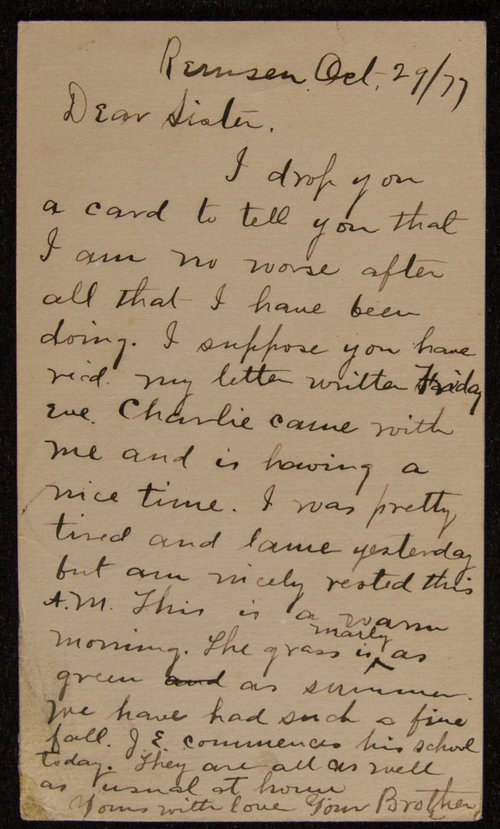 Remsen. Oct. 29/77
Dear Sister.
I drop you
a card to tell you that
I am no worse after
all that I have been
doing. I suppose you have
rec'd. my letter written Friday
eve. Charlie came with
me and is having a
nice time. I was pretty
tired and lame yesterday
but am nicely rested this
A.M. This is a warm
morning. The grass is nearly as
green and as summer.
We have had such a fine
fall. J. E. commences his school
today. They are all as well
as usual at home
Yours with love Your Brother,